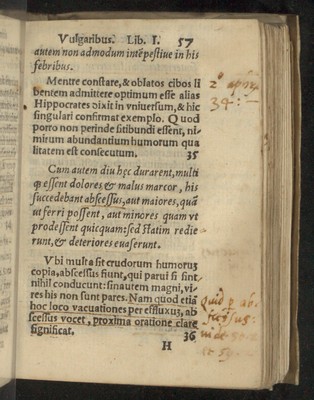 Vulgaribus. Lib. I. 57
autem non admodum intẽpestiue in his
febribus.
Mentre constare, & oblatos cibos li
bentem admittere optimum esse alias
Hippocrates dixit in vniuersum, & hic
singulari confirmat exemplo. Quod
porro non perinde sitibundi essent, ni-
mirum abundantium humorum qua
litatem est consecutum. 35
Cum autem diu hęc durarent, multi
q; essent dolores, & malus marcor, his
succedebant abscessus, aut maiores, quã
ut ferri possent, aut minores quam vt
prodessent quicquam: sed statim redie
runt, & deteriores euaserunt.
Vbi multa sit crudorum humorũ
copia, abscessus fiunt, qui parui si sint
nihil conducunt: sin autem magni, vi-
res his non sunt pares. Nam quod etiã
hoc loco vacuationes per effluxũ, ab
scessus vocet, proxima oratione clare
significat. 36
H
34
quid p ab